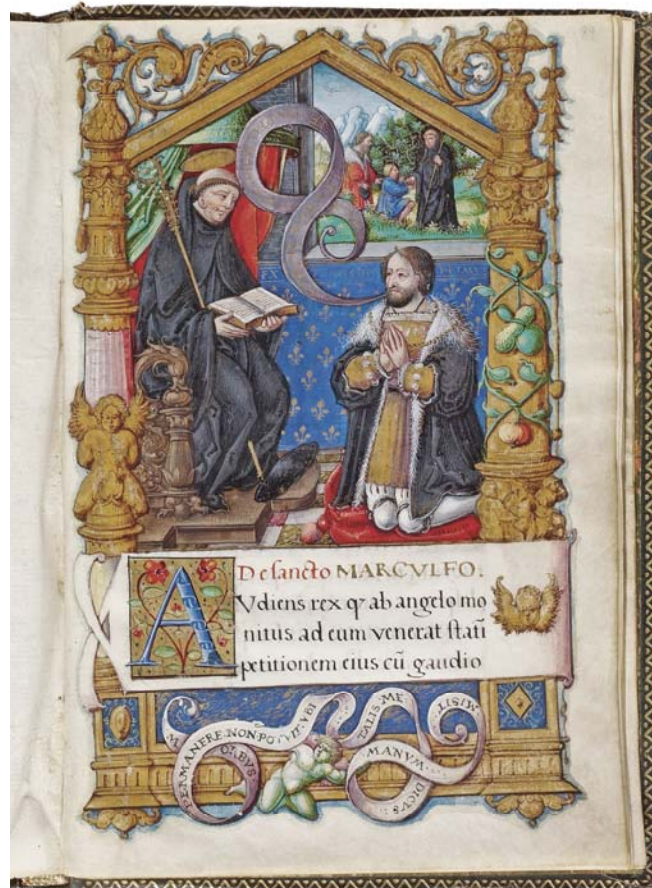 89
De sancto MARCVLFO.
AVdiens rex q7 ab angelo mo
nitus ad eum venerat statī
petitionem eius cū gaudio
PERMANERE·NON·POTVIT·VBI
TALIS·ME
MISIT
M ORBVS
MANVM
DICVS